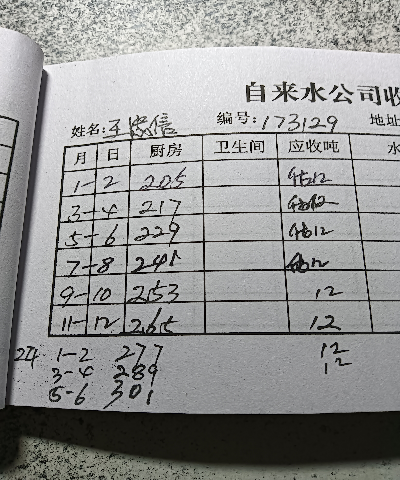 自来水公司收
姓名:王忠信 编号:173129 地址
月 日 厨房 卫生间 应收吨 水
1-2 205 12
3-4 217 12
5-6 229 12
7-8 241 12
9-10 253 12
11-12 265 12
24 1-2 277 12
3-4 289 12
5-6 301